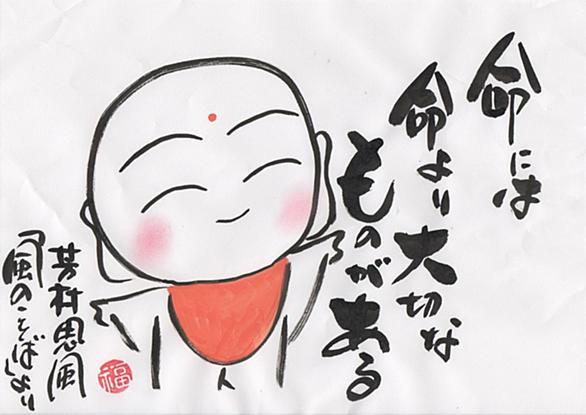 命には
命より大切な
ものがある
芳村思風
「風のことば」より
福